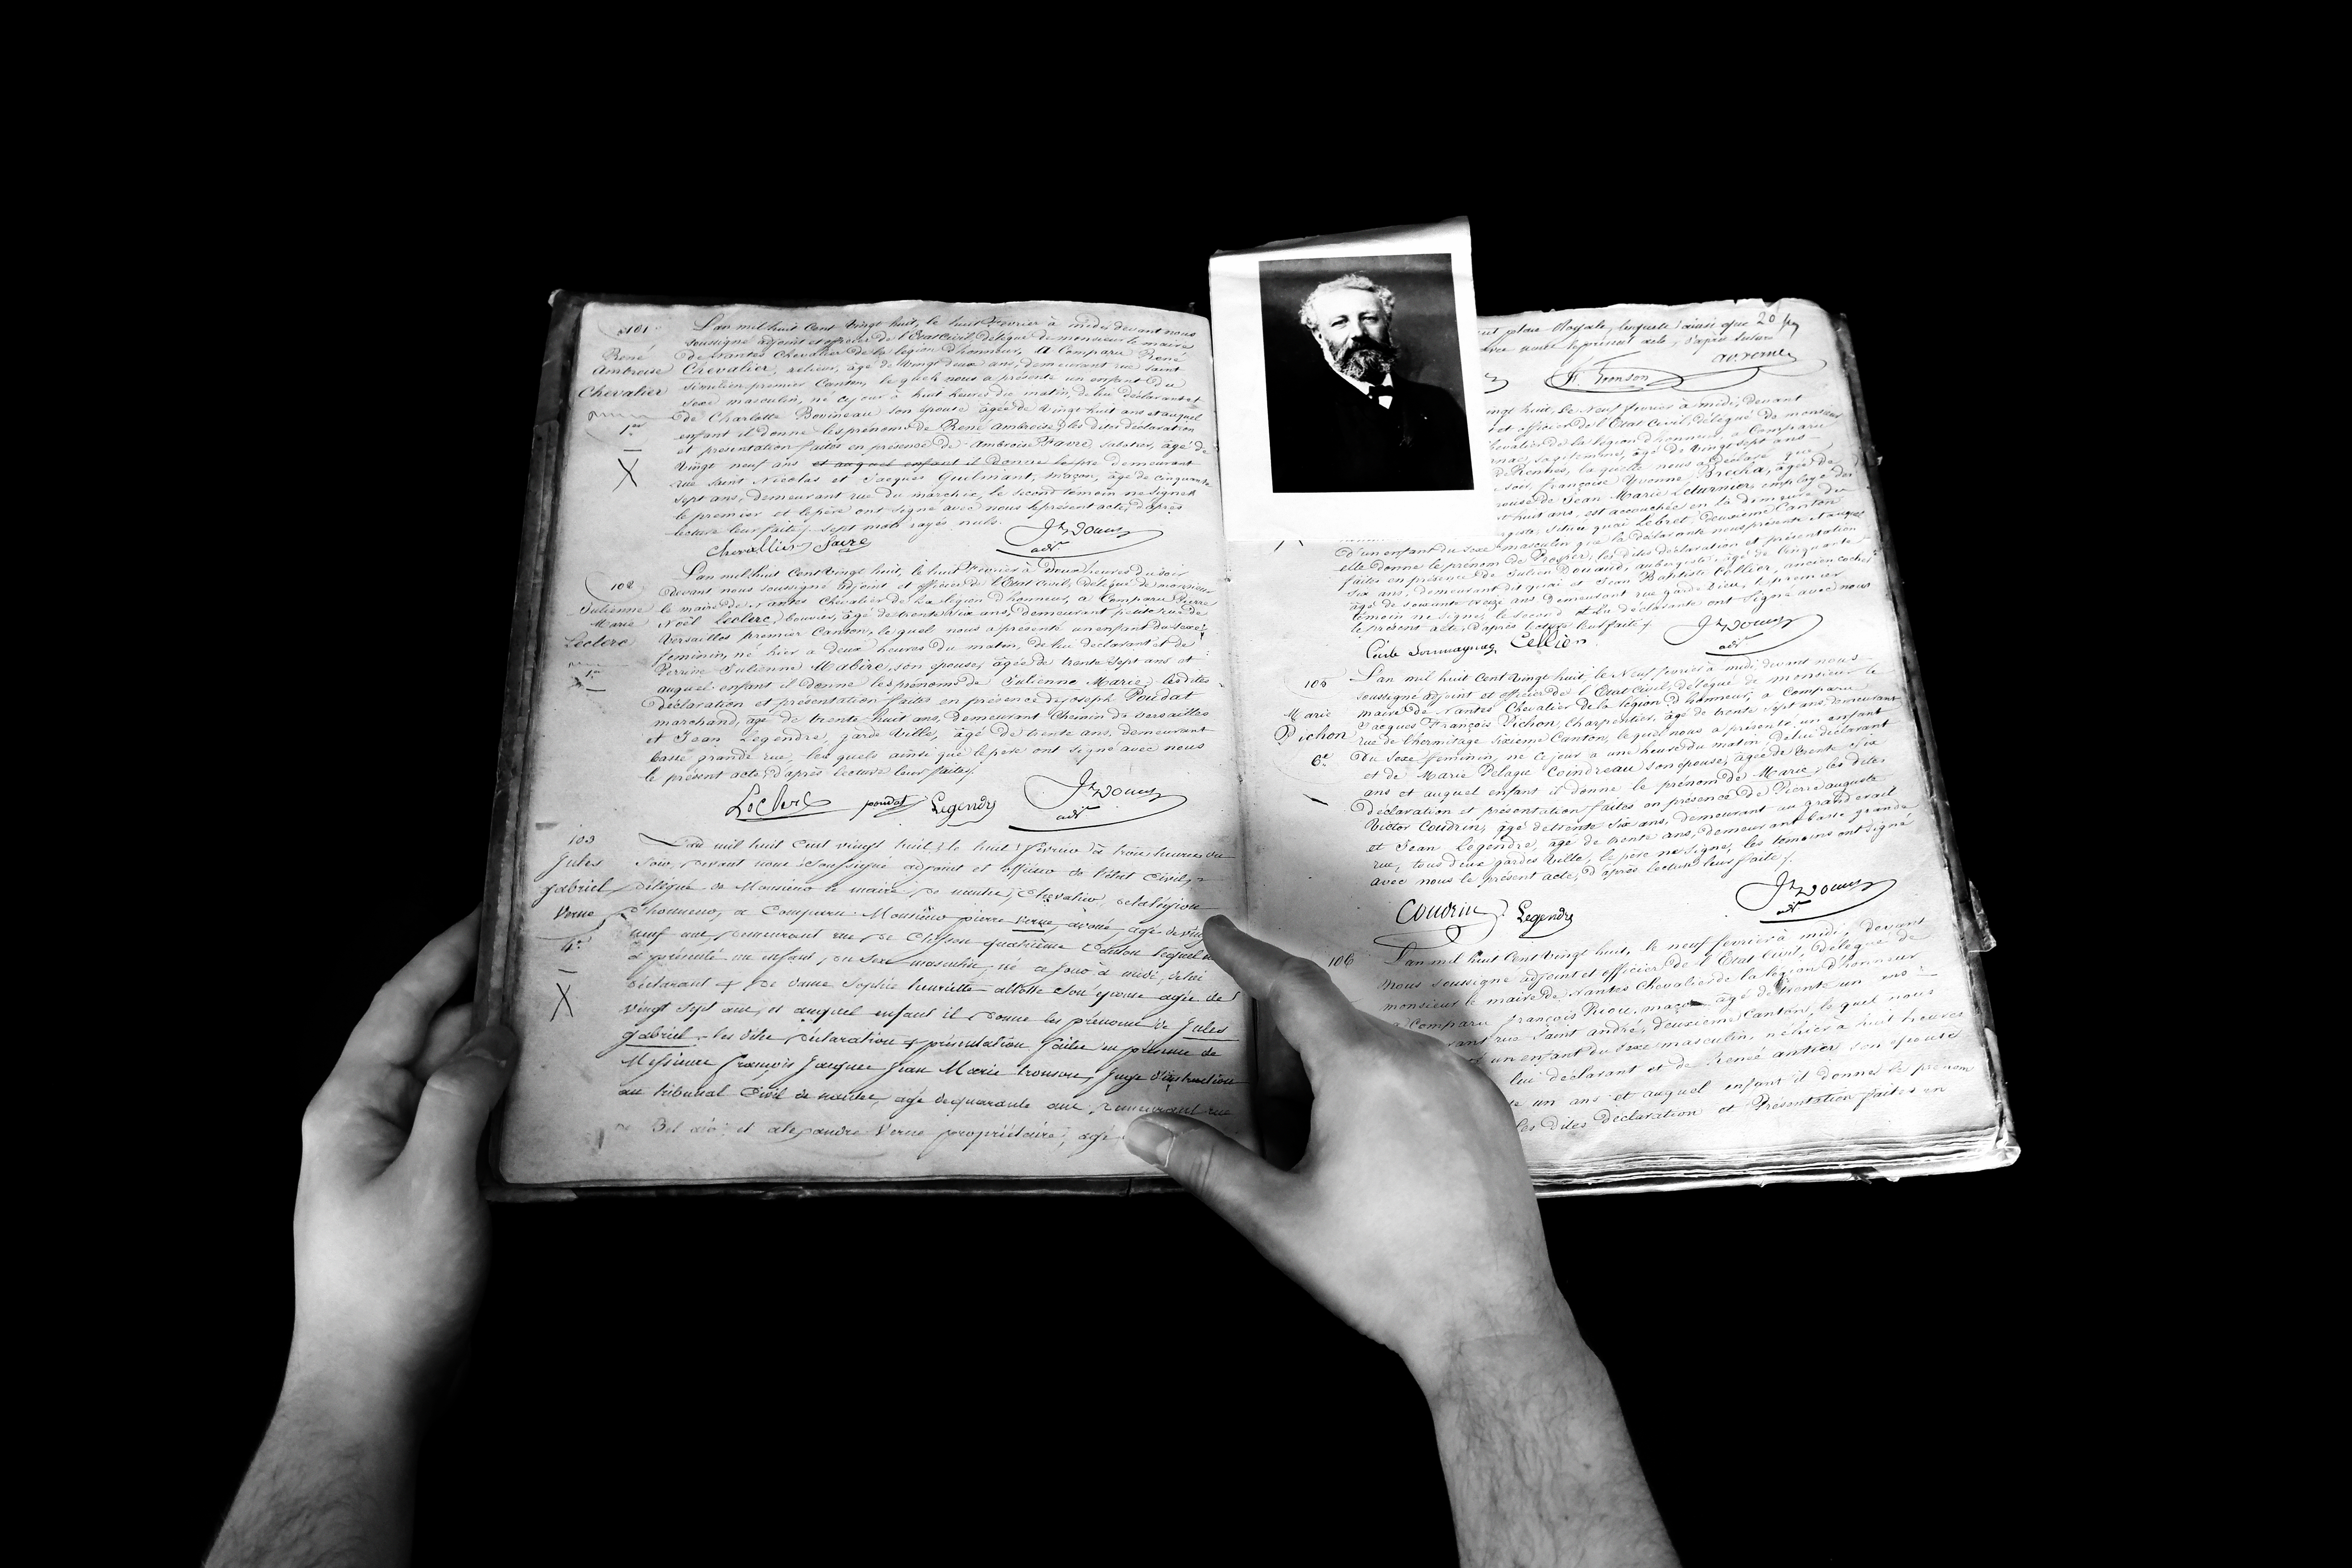 101
René
Ambroise
Chevalier
1er
L'an mil huit cent vingt huit, le huit Février à midi devant nous
soussigné adjoint et officier de l'Etat Civil, délégué de monsieur le maire
de Nantes Chevalier de la légion d'honneur, a Comparu René
Chevalier, relieur, âgé de vingt deux ans, demeurant rue saint
similien premier Canton, le quel nous a présenté un enfant du
sexe masculin, né ce jour à huit heures du matin, de lui déclarant et
de Charlotte Bovineau son épouse âgée de vingt huit ans et auquel
enfant il donne les prénoms de René Ambroise; les dites déclaration
et présentation faites en présence de Ambroise Favre sabotier, âgé de
vingt neuf ans et auquel enfant il donne les pré demeurant
rue saint Nicolas et Jacques Guilmant, maçon, âgé de cinquante
sept ans, demeurant rue du marchix, le second témoin ne signe
le premier et le père ont signé avec nous le présent acte, d'après
lecture leur faite. sept mots rayés nuls.
Chevallier
102
Julienne
Marie
Leclerc
1er
L'an mil huit cent vingt huit, le huit Février à deux heures du soir
devant nous soussigné adjoint et officier de l'Etat Civil, délégué de monsieur
le maire de Nantes Chevalier de la légion d'honneur, a Comparu Pierre
Noël Leclerc, bouvier, âgé de trente six ans, demeurant petite rue de
Versailles premier Canton, le quel nous a présenté un enfant du sexe
feminin, né hier à deux heures du matin, de lui déclarant et de
Perrine Julienne Mabire, son épouse, âgée de trente sept ans et
auquel enfant il donne les prénoms de Julienne Marie; les dites
déclaration et présentation faites en présence de joseph Poudat
marchand, âgé de trente huit ans, demeurant Chemin de versailles
et Jean Legendre, garde ville, âgé de trente ans, demeurant
basse grande rue, les quels ainsi que le père ont signé avec nous
le présent acte, d'après lecture leur faite.
Leclerc poudat Legendre
103
Jules
gabriel
Verne
4e
L'an mil huit Cent vingt huit, le huit Février à trois heures du
soir, devant nous soussigné adjoint et officier de l'état Civil,
délégué de Monsieur le maire de nantes, Chevalier de la légion
d'honneur, a Comparu Monsieur pierre Verne, avoué, agé de vingt
neuf ans, demeurant rue de Clisson quatrième Canton lequel
a présenté un enfant, du sexe masculin, né ce jour à midi, de lui
déclarant et de dame Sophie henriette allotte son épouse agée de
vingt sept ans, et auquel enfant il donne les prénoms de Jules
gabriel, les dites déclaration et présentation faites en présence de
Messieurs françois Jacques Jean Marie tronson, Juge d'instruction
au tribunal Civil de nantes, agé de quarante ans, demeurant rue
Bel air; et alexandre Verne propriétaire, agé
place Royale, lesquels ainsi que
avec nous le présent acte, d'après lecture
av. verne
fr. Tronson
vingt huit, le Neuf février à midi, devant
et officier de l'Etat Civil, délégué de monsieur
chevalier de la légion d'honneur, a Comparu
sage femme, âgée de vingt sept ans
de Rennes, la quelle nous a déclaré que
soir, françoise Yvonne Brecha, âgée de
épouse de Jean Marie Leturnier employé des
huit ans, est accouchée en la demeure de
située quai Lebret, deuxième Canton
d'un enfant du sexe masculin que la déclarante nous présente et auquel
elle donne le prénom de Prosper; les dites déclaration et présentation
faites en présence de Julien Douaud, aubergiste, âgé de cinquante
six ans, demeurant dit quai et Jean Baptiste Cellier, ancien cocher
âgé de soixante treize ans demeurant rue garde Dieu, le premier
témoin ne signe, le second et la déclarante ont signé avec nous
le présent acte, d'après lecture leur faite.
Cellier
105
Marie
Pichon
6e
L'an mil huit Cent vingt huit, le Neuf février à midi devant nous
soussigné adjoint et officier de l'Etat Civil, délégué de monsieur le
maire de Nantes Chevalier de la légion d'honneur, a Comparu
Jacques François Pichon, Charpentier, âgé de trente sept ans, demeurant
rue de l'hermitage sixième Canton, le quel nous a présenté un enfant
du sexe feminin, né ce jour à une heure du matin, de lui déclarant
et de Marie Pelagie Coindreau son épouse, âgée de trente six
ans et auquel enfant il donne le prénom de Marie; les dites
déclaration et présentation faites en présence de Pierre auguste
Victor Coudrin, âgé de trente six ans, demeurant au grand
et Jean Legendre, âgé de trente ans, demeurant basse grande
rue, tous deux gardes ville, le père ne signe, les témoins ont signé
avec nous le présent acte, d'après lecture leur faite.
Coudrin Legendre
106
L'an mil huit Cent vingt huit, le neuf février à midi, devant
Nous soussigné adjoint et officier de l'Etat Civil, délégué de
monsieur le maire de Nantes Chevalier de la légion d'honneur
a Comparu françois Riou, maçon, âgé de trente un
rue Saint andré, deuxième Canton, le quel nous
un enfant du sexe masculin, né hier à huit heures
lui déclarant et de Renée antier son épouse
un ans et auquel enfant il donne le prénom
les dites déclaration et Présentation faites en